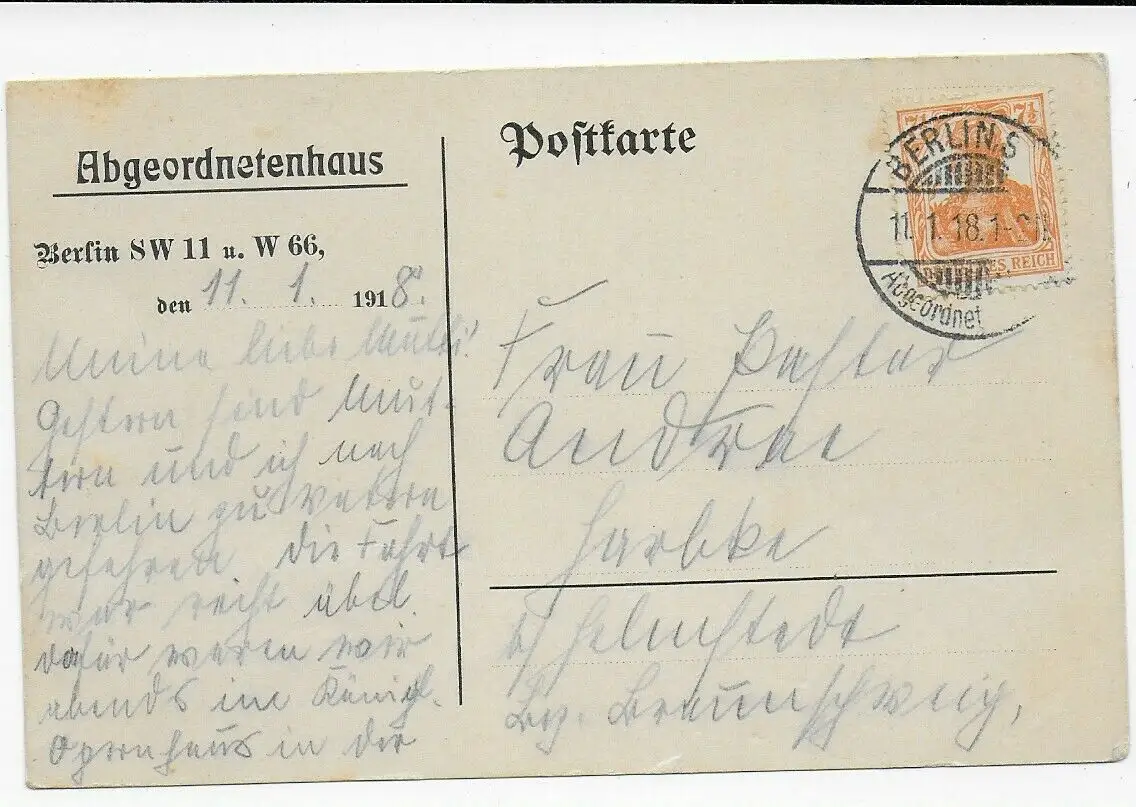 Abgeordnetenhaus
Berlin SW 11 u. W 66,
den 11. 1. 1918.
Meine liebe Mutti!
Gestern sind Mut-
tern und ich nach
Berlin zu Vatern
gefahren die Fahrt
war recht übel.
dafür waren wir
abends im Königl.
Opernhaus in der
Postkarte
7½ 7½
BERLIN S
11.1.18.1-2N.
Abgeordnet
ES REICH
Frau Pastor
Andrae
Harbke
b/ Helmstedt
Bez. Braunschweig,